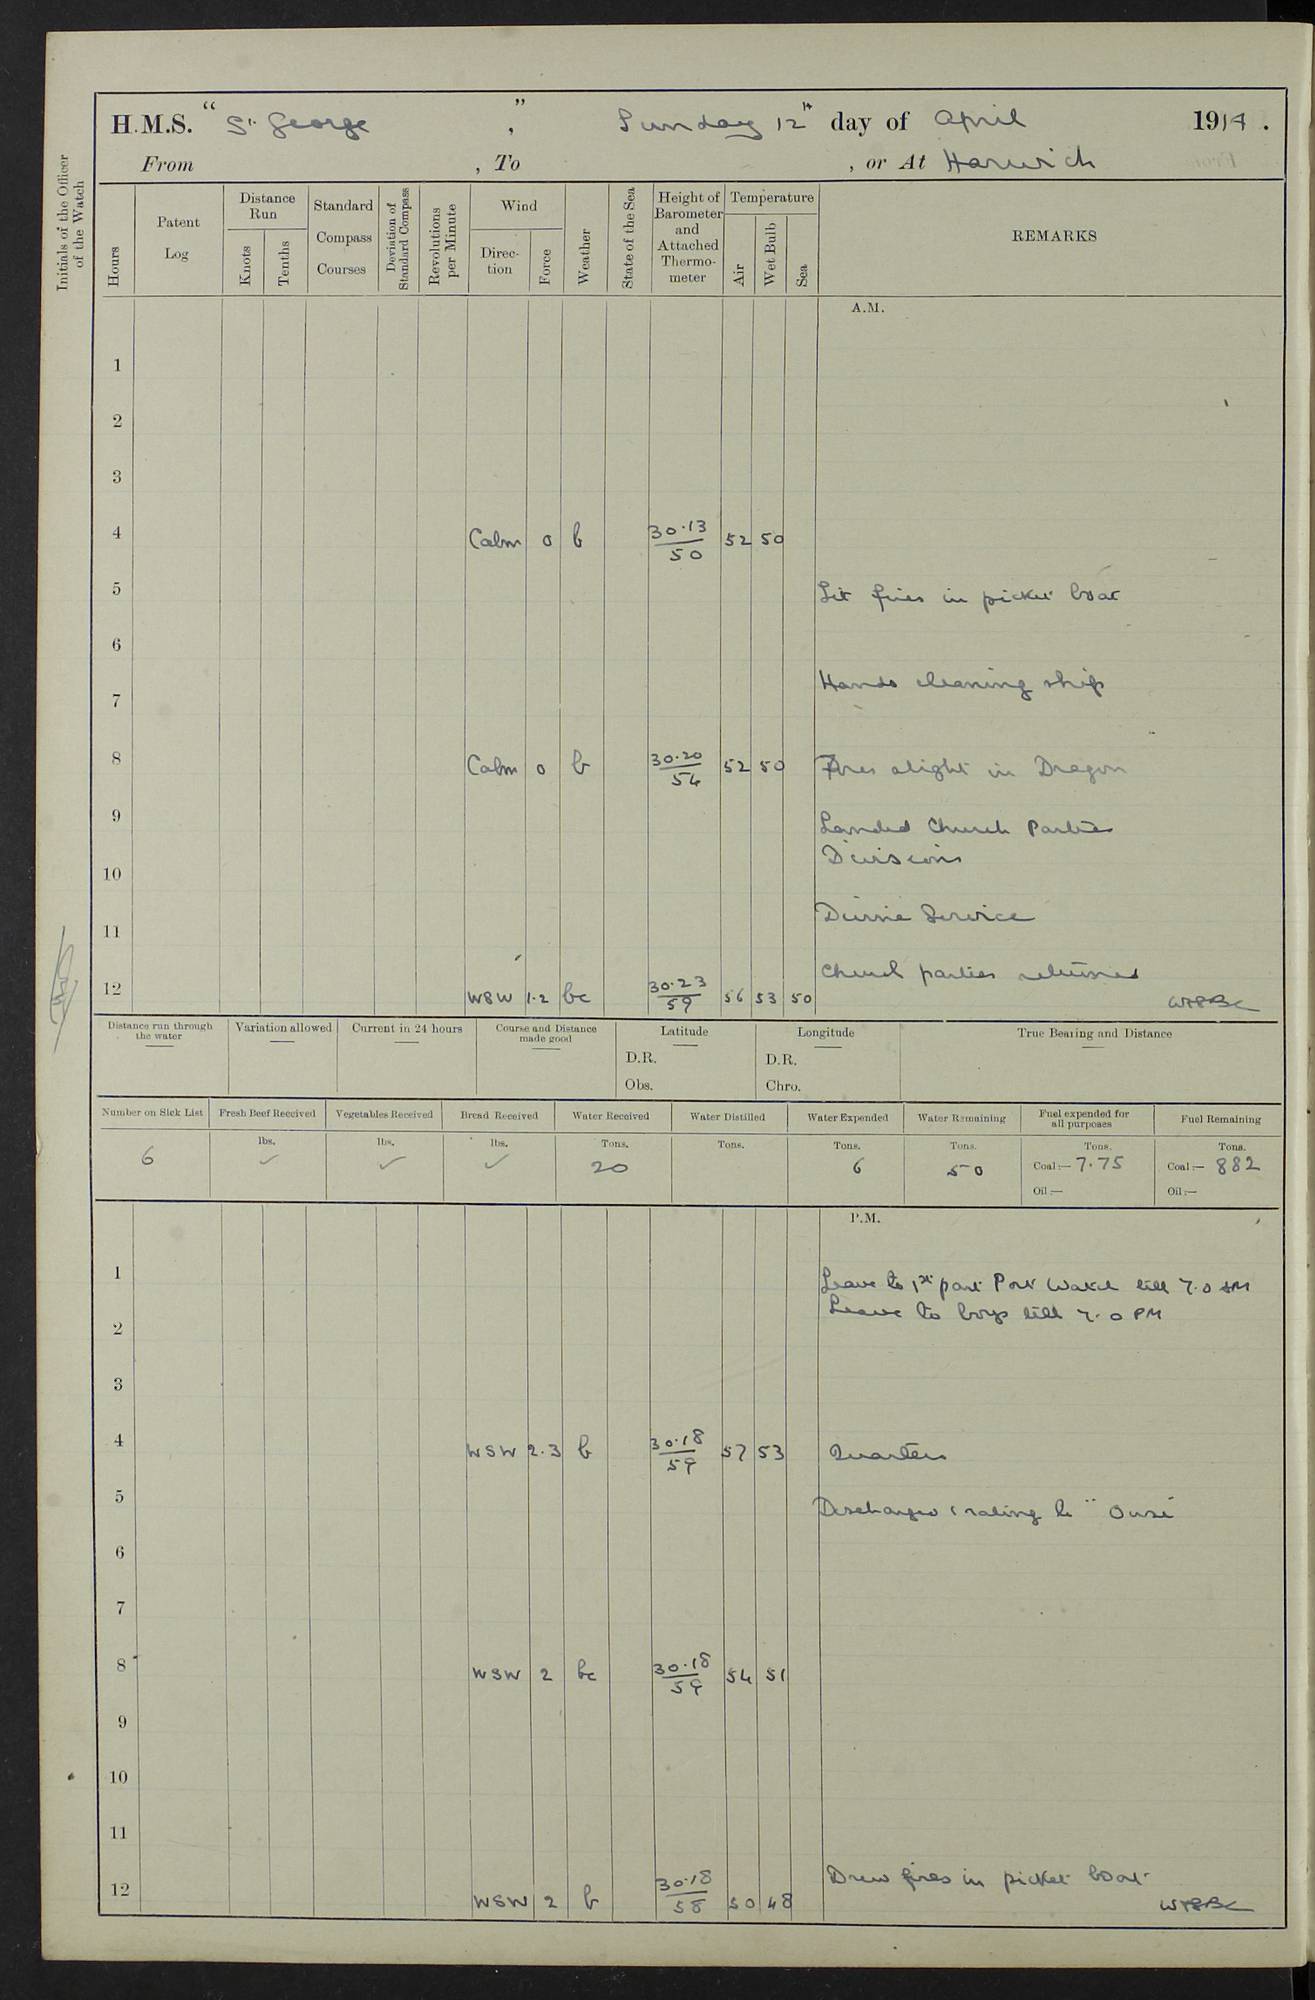 H.M.S. "St. George", Sunday 12th day of April 1914.
From , To , or At Harwich
Initials of the Officer of the Watch
Hours
Patent Log
Distance Run
Knots
Tenths
Standard Compass Courses
Deviation of Standard Compass
Revolutions per Minute
Wind
Direction
Force
Weather
State of the Sea
Height of Barometer and Attached Thermometer
Temperature
Air
Wet Bulb
Sea
REMARKS
A.M.
1
2
3
4 Calm 0 b 30.13/50 52 50
5 Lit fires in picket boat
6
Hands cleaning ship
7
8 Calm 0 b 30.20/54 52 50 Fires alight in Dragon
9 Landed Church Parties
Divisions
10
Divine Service
11
Church parties returned
12 WSW 1.2 bc 30.23/59 56 53 50
Distance run through the water
Variation allowed
Current in 24 hours
Course and Distance made good
Latitude
D.R.
Obs.
Longitude
D.R.
Chro.
True Bearing and Distance
Number on Sick List Fresh Beef Received Vegetables Received Bread Received Water Received Water Distilled Water Expended Water Remaining Fuel expended for all purposes Fuel Remaining
lbs. lbs. lbs. Tons. Tons. Tons. Tons. Tons. Tons.
6 ✓ ✓ ✓ 20 6 50 Coal:— 7.75 Coal:— 882
Oil:— Oil:—
P.M.
1 Leave to 1st part Port Watch till 7.0 AM
Leave to boys till 7.0 PM
2
3
4 WSW 2.3 b 30.18/59 57 53 Quarters
5 Discharged 1 rating to "Ouse"
6
7
8 WSW 2 bc 30.18/59 54 51
9
10
11
Drew fires in picket boat
12 WSW 2 b 30.18/58 50 48